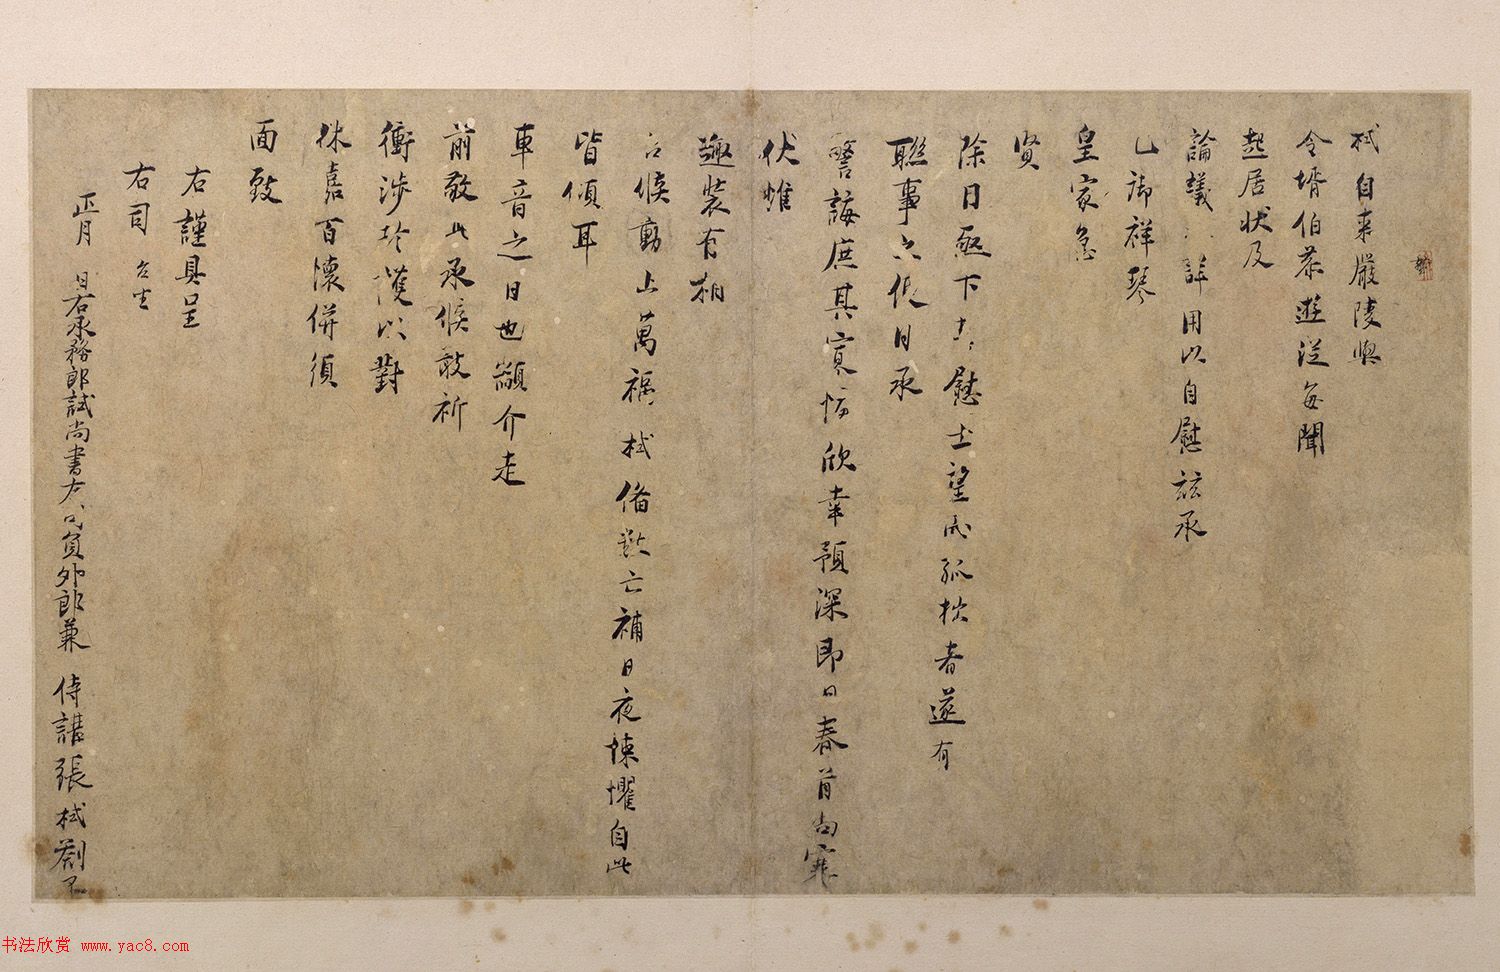 栻自来嚴陵與
令壻伯恭遊從每聞
起居狀及
論議詳用以自慰兹承
已御祥琴
皇家急
賢
除日亟下慰士望而孤拙者遂有
聯事之便日承
警誨庶其寡悔欣幸預深即日春首尚寒
伏惟
趣裝有相
台候動止萬福栻備數亡補日夜悚懼自此
皆傾耳
車音之日也顓介走
前敬此承候敢祈
衝涉珍護以對
休嘉百懷併須
面致
右謹具呈
右司
正月 日右承務郎試尚書左司員外郎兼 侍講張栻劄子
书法欣赏 www.yac8.com